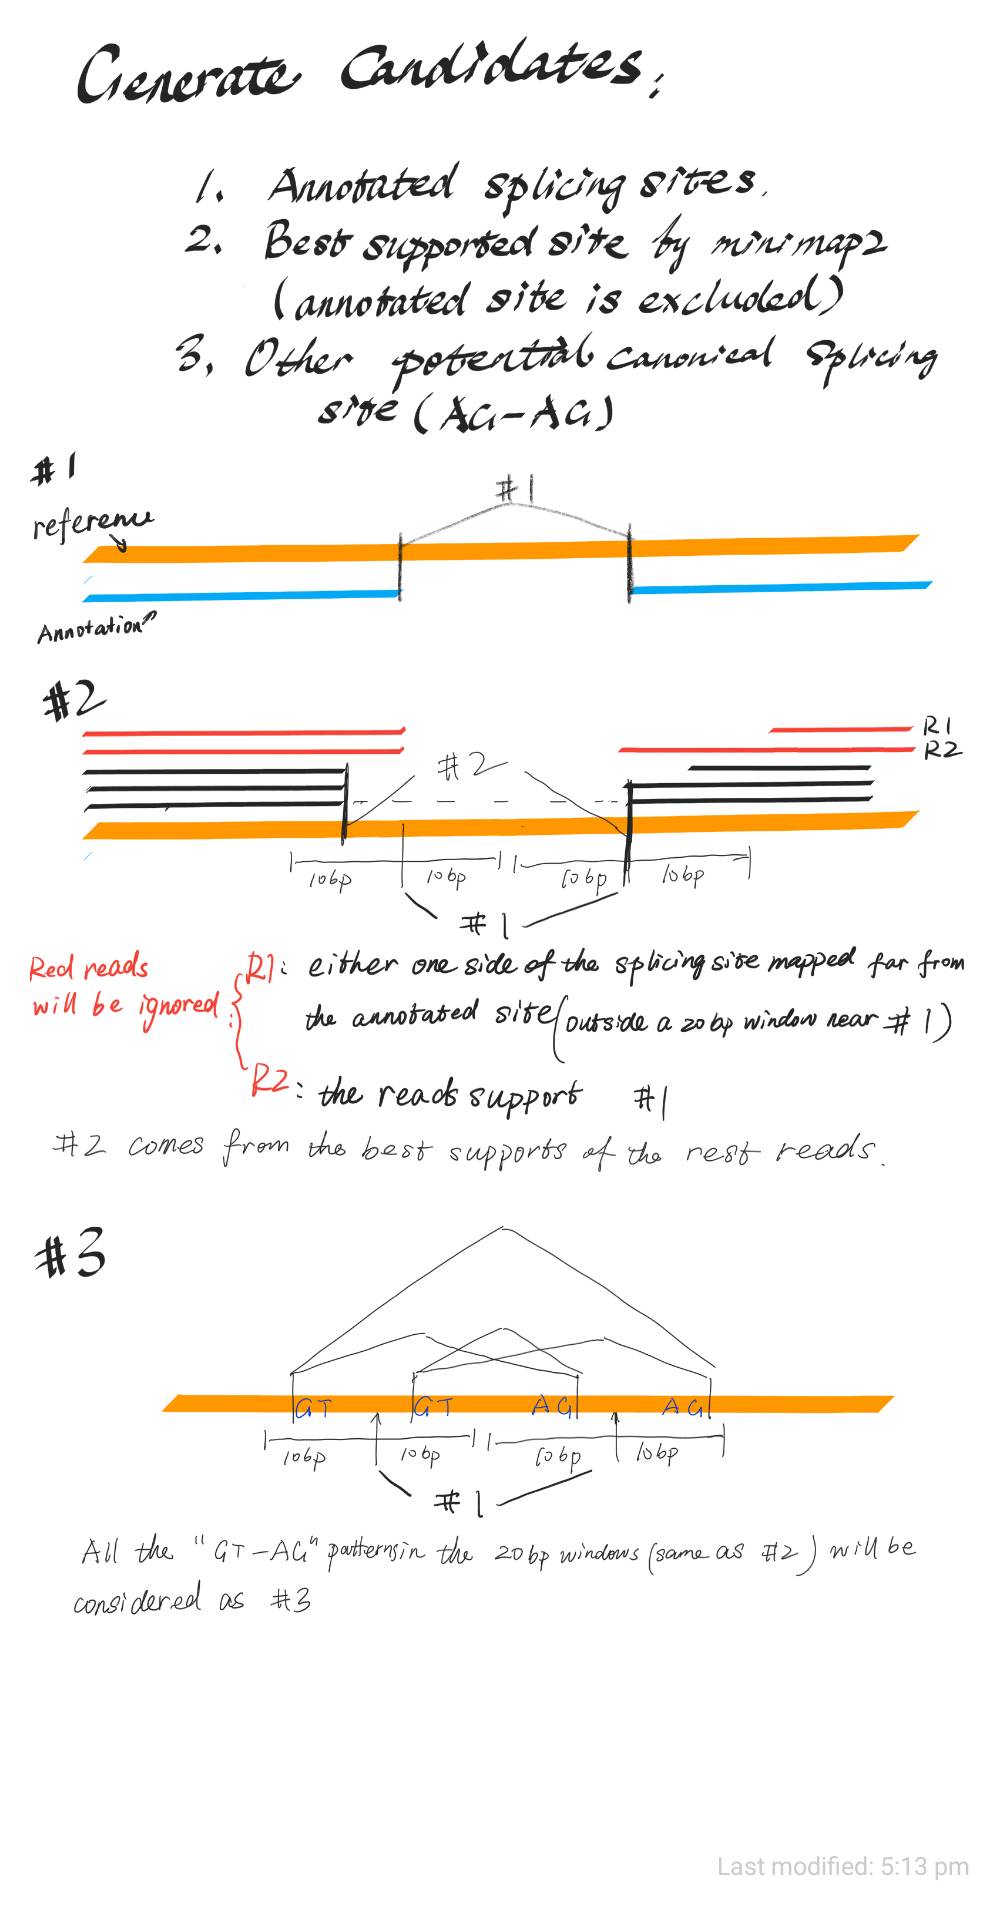 Generate Candidates:
1. Annotated splicing sites.
2. Best supported site by minimap2
(annotated site is excluded)
3. Other potential canonical splicing
site (AG-AG)
#1
#1
reference
Annotation
#2
R1
#2
R2
10bp 10bp 10bp 10bp
#1
Red reads
will be ignored:
R1: either one side of the splicing site mapped far from
the annotated site (outside a 20bp window near #1)
R2: the reads support #1
#2 comes from the best supports of the rest reads.
#3
GT GT AG AG
10bp 10bp 10bp 10bp
#1
All the "GT-AG" patterns in the 20bp windows (same as #2) will be
considered as #3
Last modified: 5:13 pm